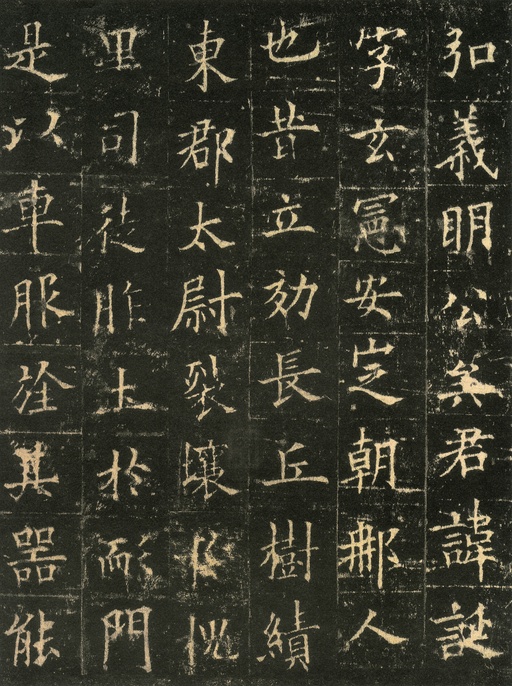 弘義明公矣君諱誕
字玄憲安定朝那人
也昔立効長丘樹績
東郡太尉裂壤於槐
里司徒胙土於耏門
是以車服旌其器能